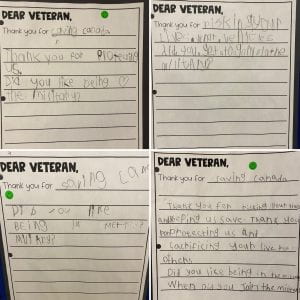 DEAR VETERAN,
Thank you for saving canada
Thank you for
us
Did you like being
the military?
DEAR VETERAN,
Thank you for risking your
live. What vehicles
did you get to go in the
military?
DEAR VETERAN,
Thank you for saving Cana
Did you like
being in the
military?
DEAR VETERAN,
Thank you for saving canada
Thank you for
keeping us save. Thank you
for protecting us and
sacrificing your live for
others
Did you like being in the
When did you join the